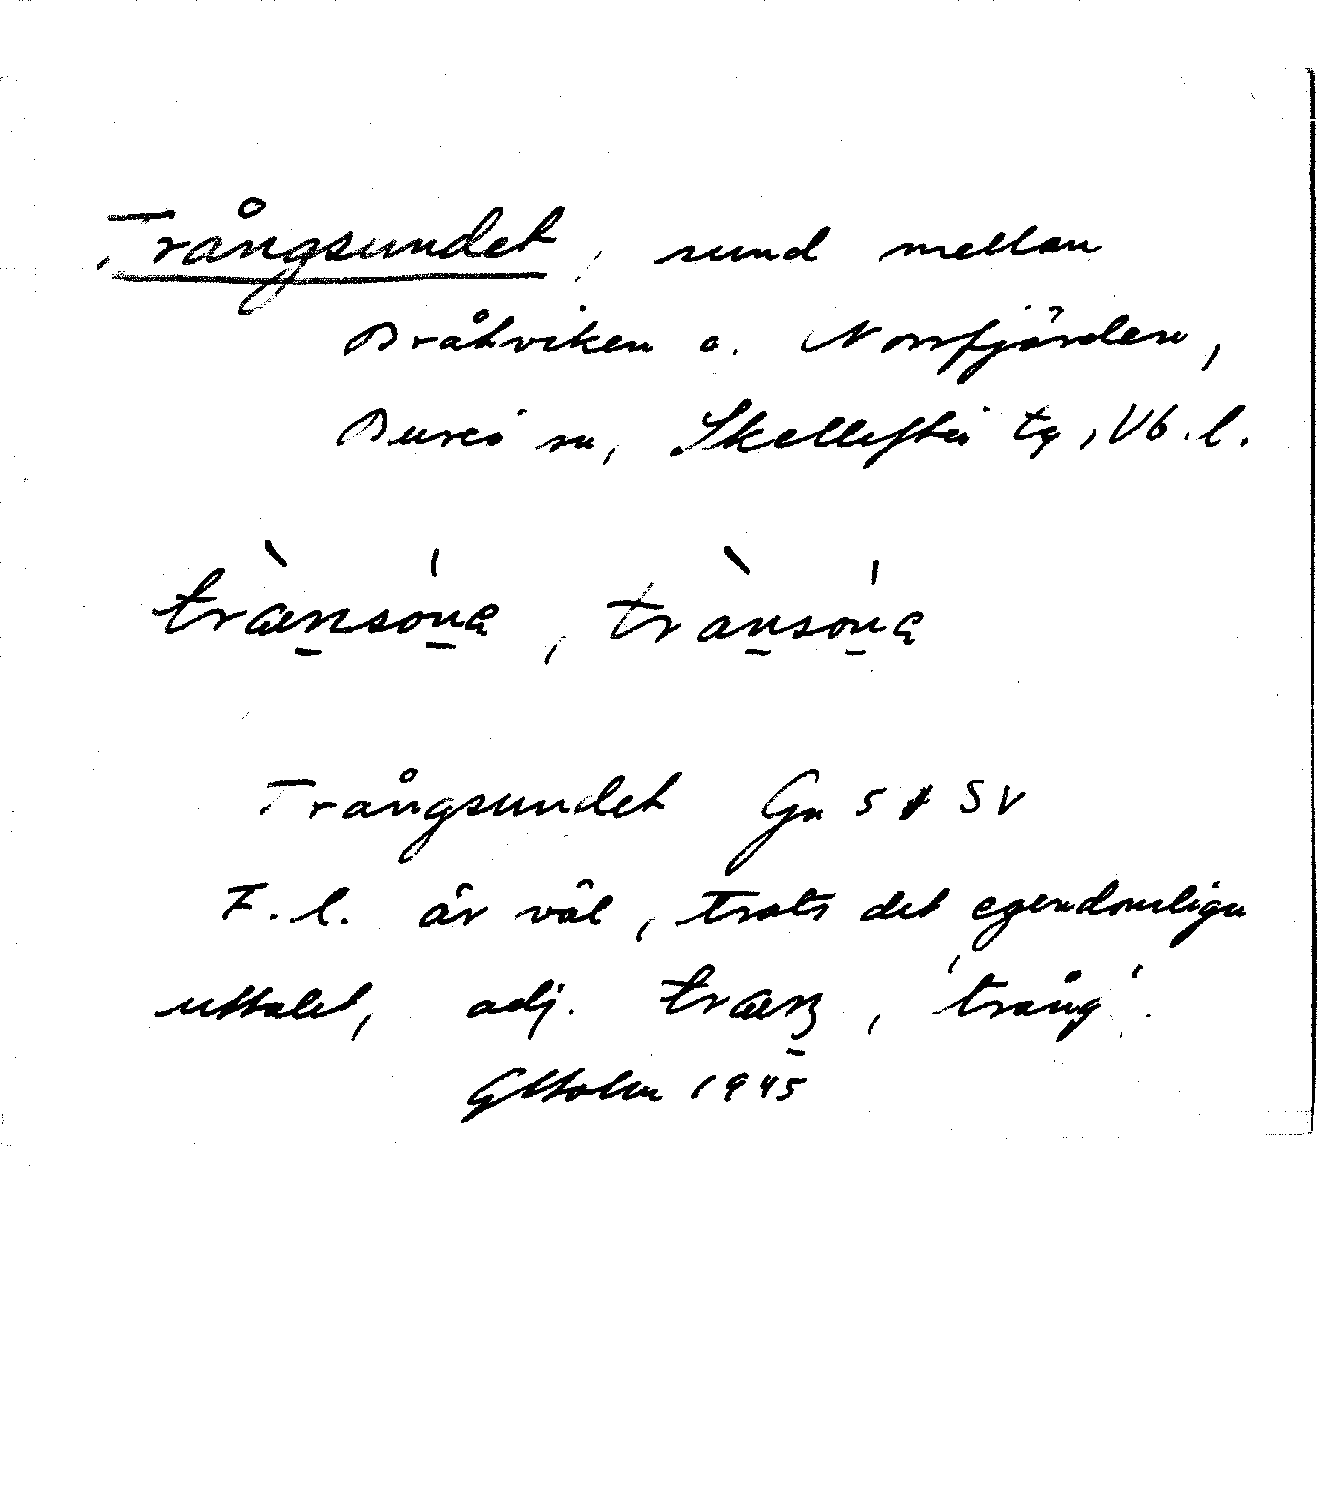 Trångsundet, sund mellan
Bråtviken o. Norrfjärden,
Bureå sn, Skellefteå tg, Vb. l.
trænsóna, trànsóna
Trångsundet Gn 5 SV
F. l. är väl, trots det egendomliga
uttalet, adj. træŋ, 'trång'.
GHolm 1945